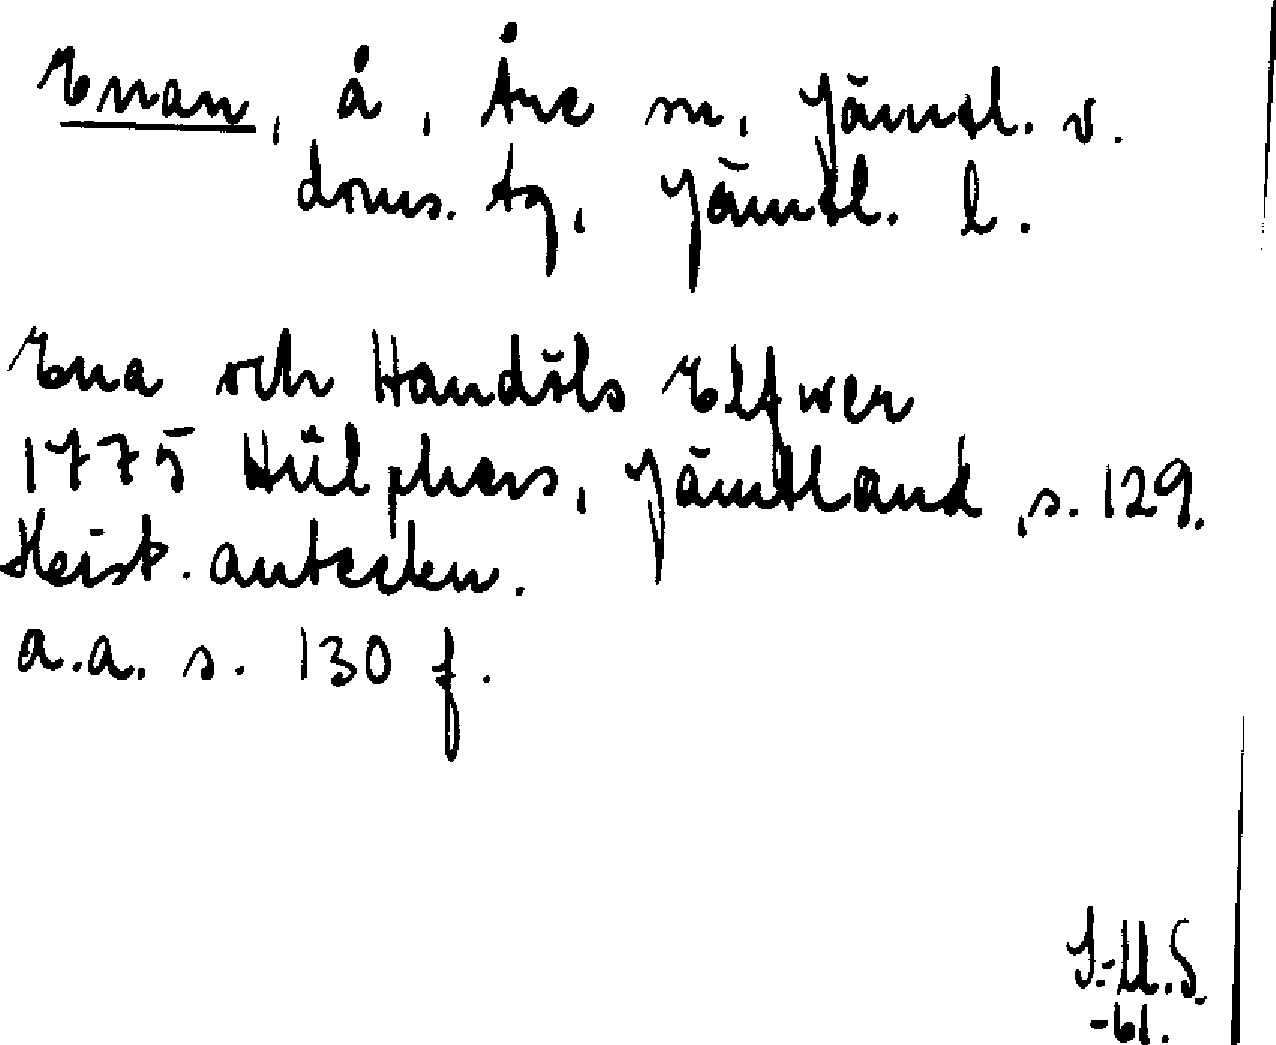 Enan, å, Åre sn, Jämtl. v.
doms. tg, Jämtl. l.
Ena och Handöls Elfwer
1775 Hülphers, Jämtland, s. 129.
Heist. anteckn.
a.a. s. 130 f.
I.-M.S.
-61.